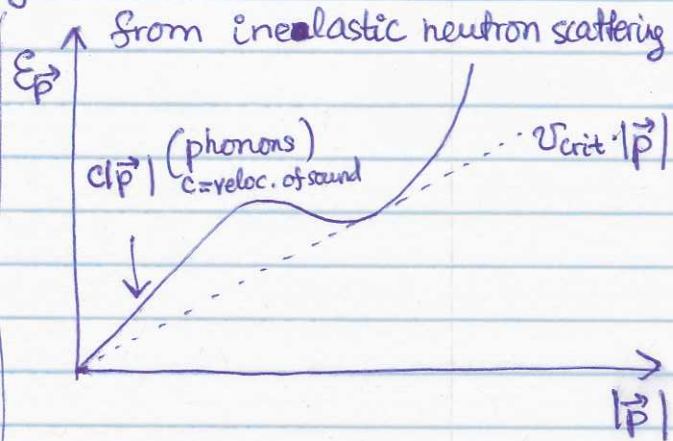 from inelastic neutron scattering
ε_p⃗
(phonons)
c|p⃗| c=veloc. of sound
v_crit·|p⃗|
|p⃗|